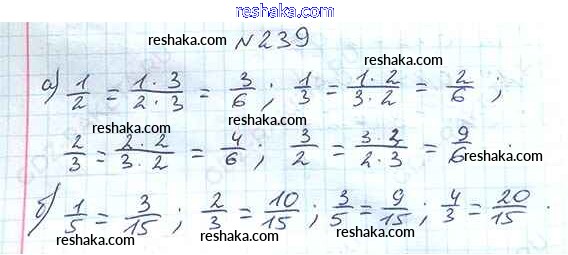 www.reshaka.com
reshaka.com №239 reshaka.com
а) 1/2 = 1·3/2·3 = 3/6; 1/3 = 1·2/3·2 = 2/6;
reshaka.com reshaka.com
2/3 = 2·2/3·2 = 4/6; 3/2 = 3·3/2·3 = 9/6 reshaka.com
б) 1/5 = 3/15; 2/3 = 10/15; 3/5 = 9/15; 4/3 = 20/15.
reshaka.com reshaka.com
www.reshaka.com